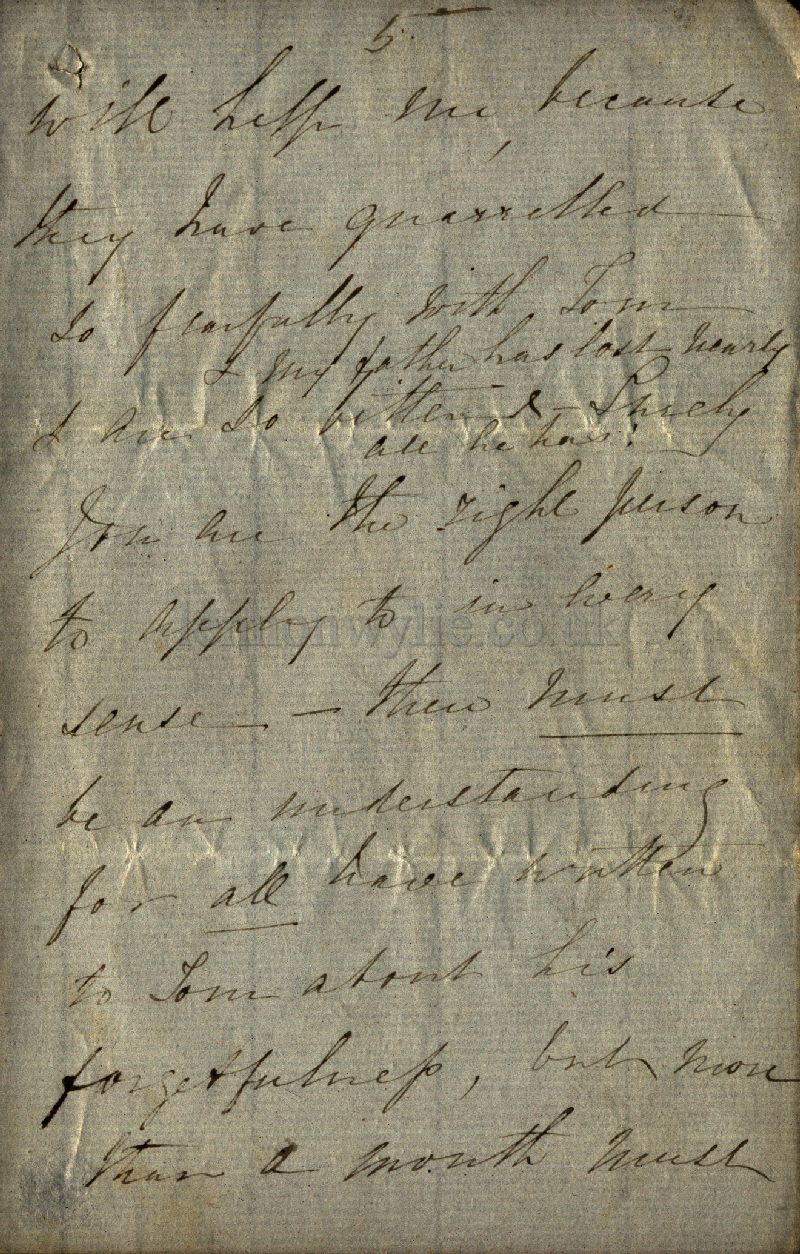 5.
will help me, because
they have quarrelled
so fearfully with Tom
& my father has lost nearly
& are so bitter & - Surely
all he has!
You are the right person
to apply to in every
sense - there must
be an understanding
for all have written
to Tom about his
forgetfulness, but more
than a month must